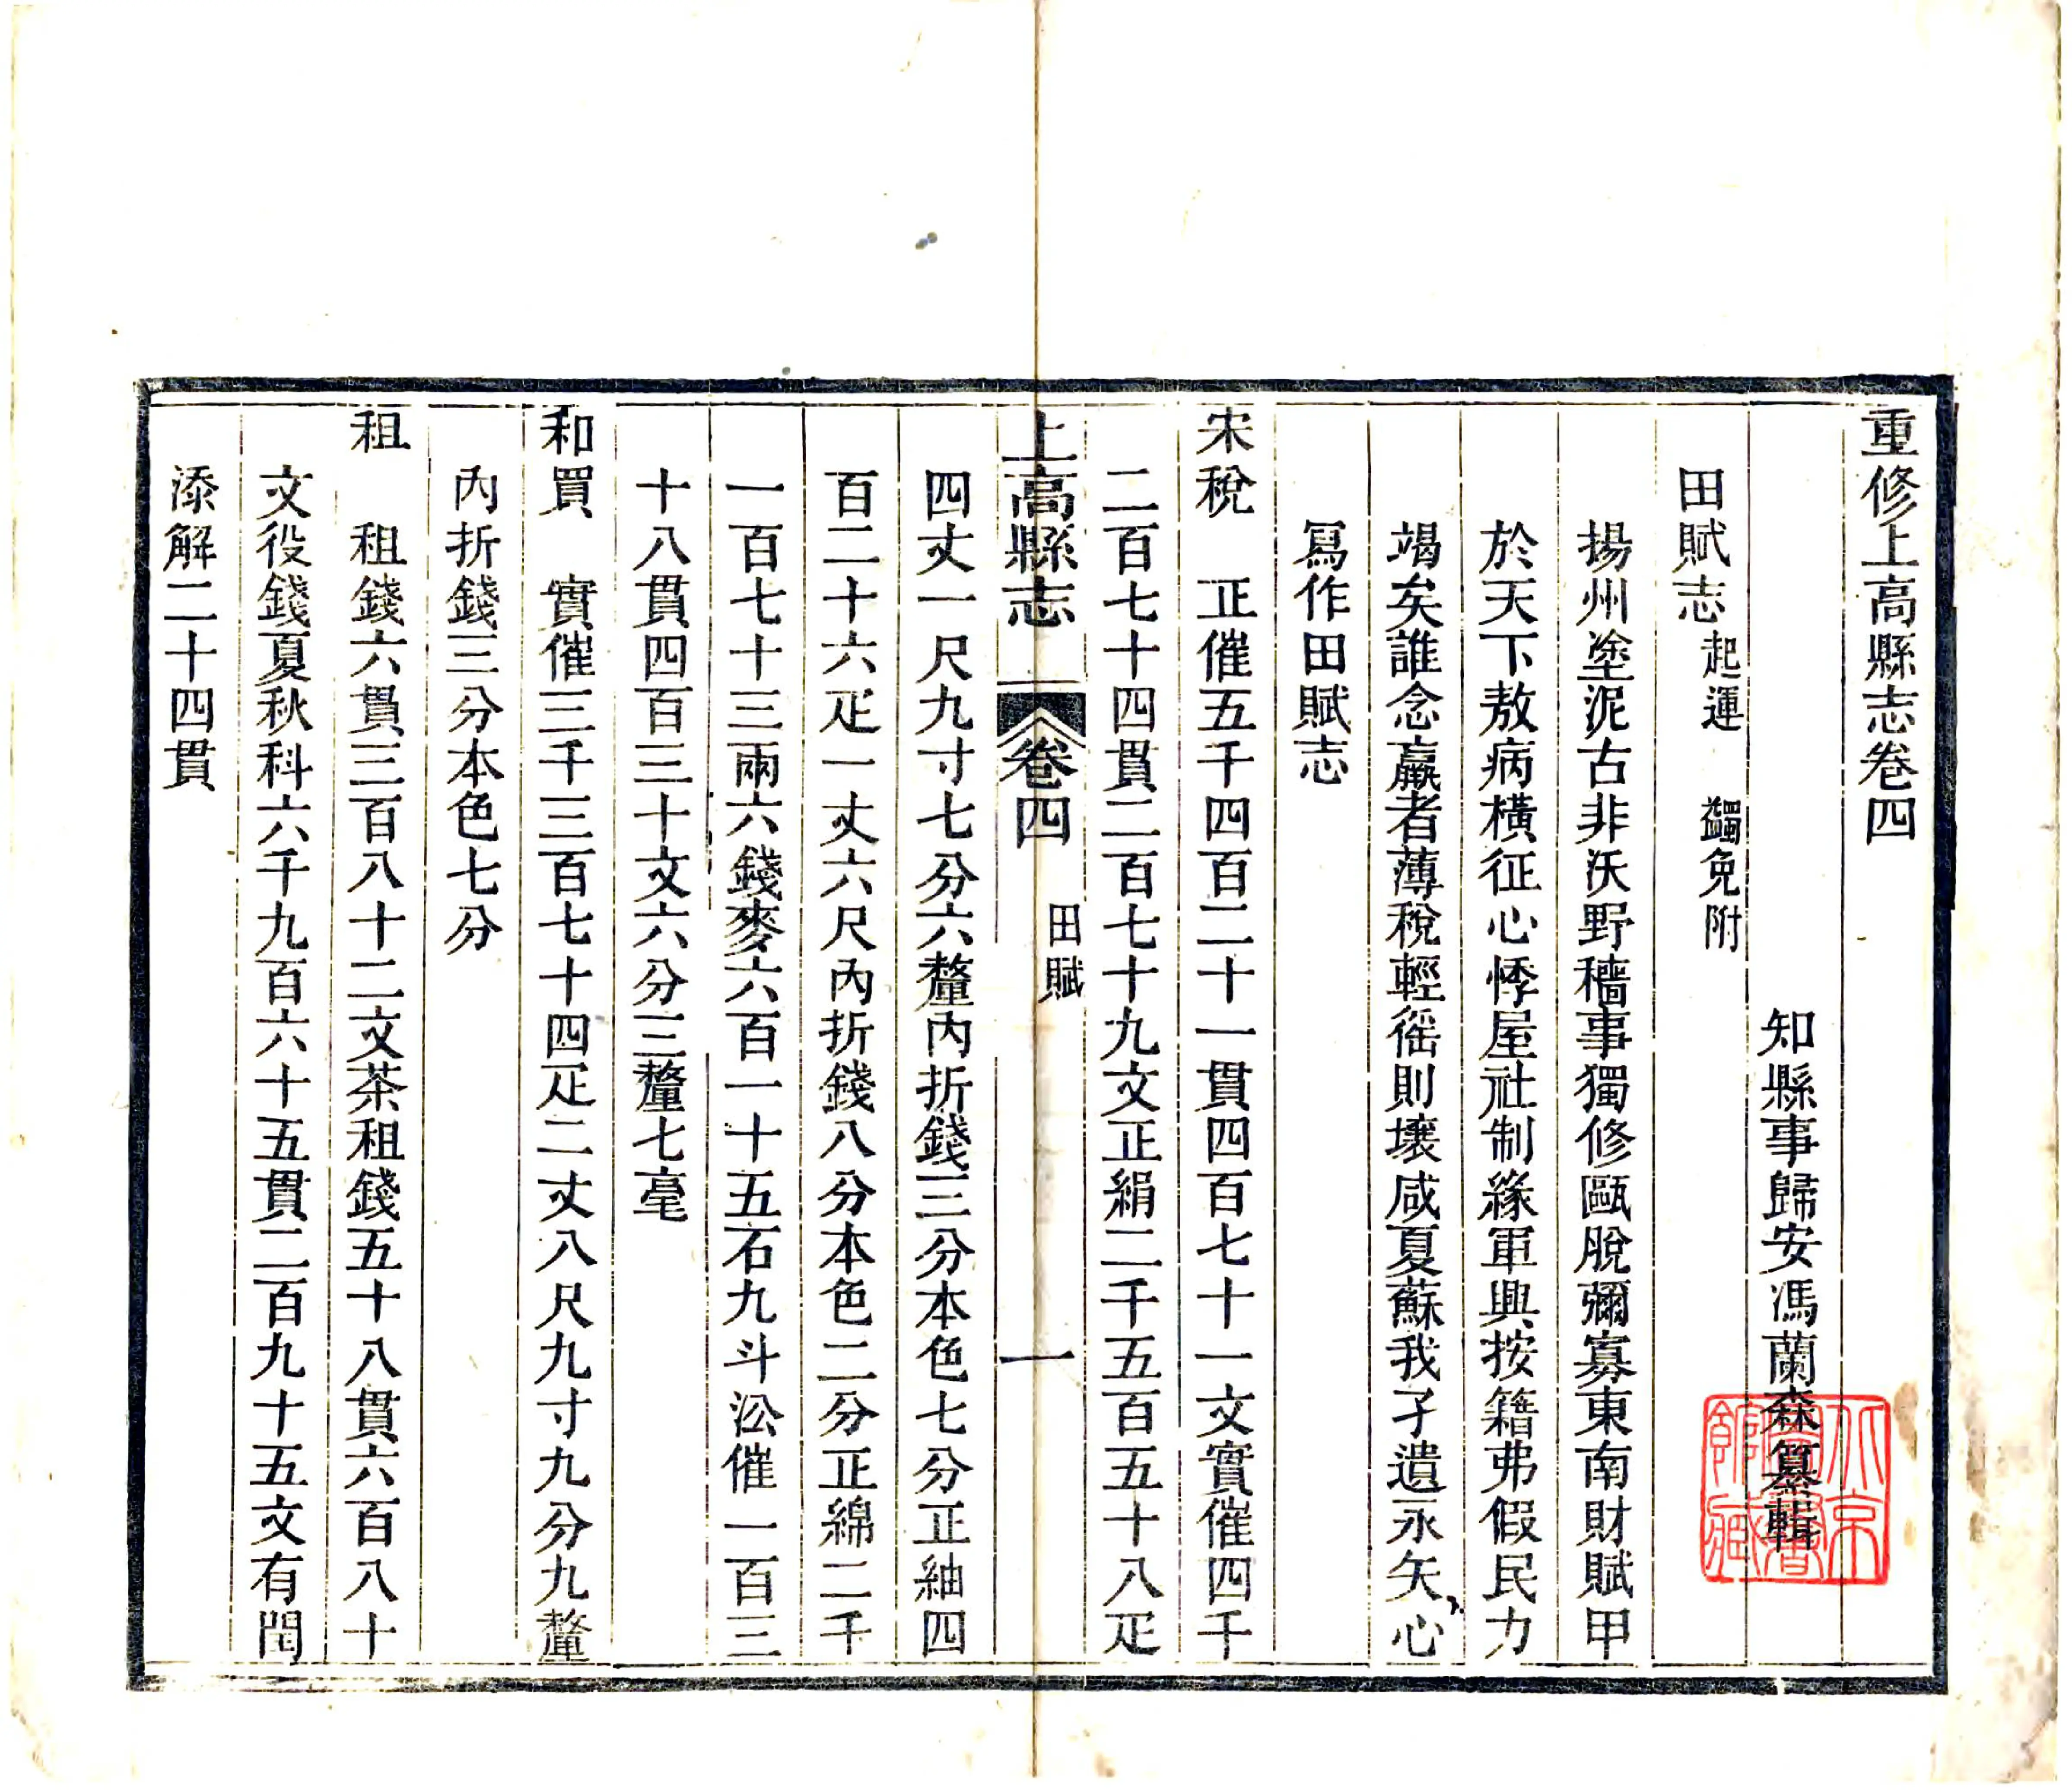 重修上高縣志卷四
知縣事歸安馮蘭森纂輯
田賦志起運 蠲免附
揚州塗泥古非沃野穡事獨修甌脫彌寡東南財賦甲
於天下敖病橫征心悸屋社制緣軍興按籍弗假民力
竭矣誰念羸者薄稅輕徭則壤咸夏蘇我孑遺永矢心
冩作田賦志
宋稅 正催五千四百二十一貫四百七十一文實催四千
二百七十四貫二百七十九文正絹二千五百五十八疋
上高縣志 卷四 田賦 一
四丈一尺九寸七分六釐內折錢三分本色七分正紬四
百二十六疋一丈六尺內折錢八分本色二分正綿二千
一百七十三兩六錢麥六百一十五石九斗㳂催一百三
十八貫四百三十文六分三釐七毫
和買 實催三千三百七十四疋二丈八尺九寸九分九釐
內折錢三分本色七分
租 租錢六貫三百八十二文茶租錢五十八貫六百八十
文役錢夏秋科六千九百六十五貫二百九十五文有閏
添解二十四貫
北京圖書館藏